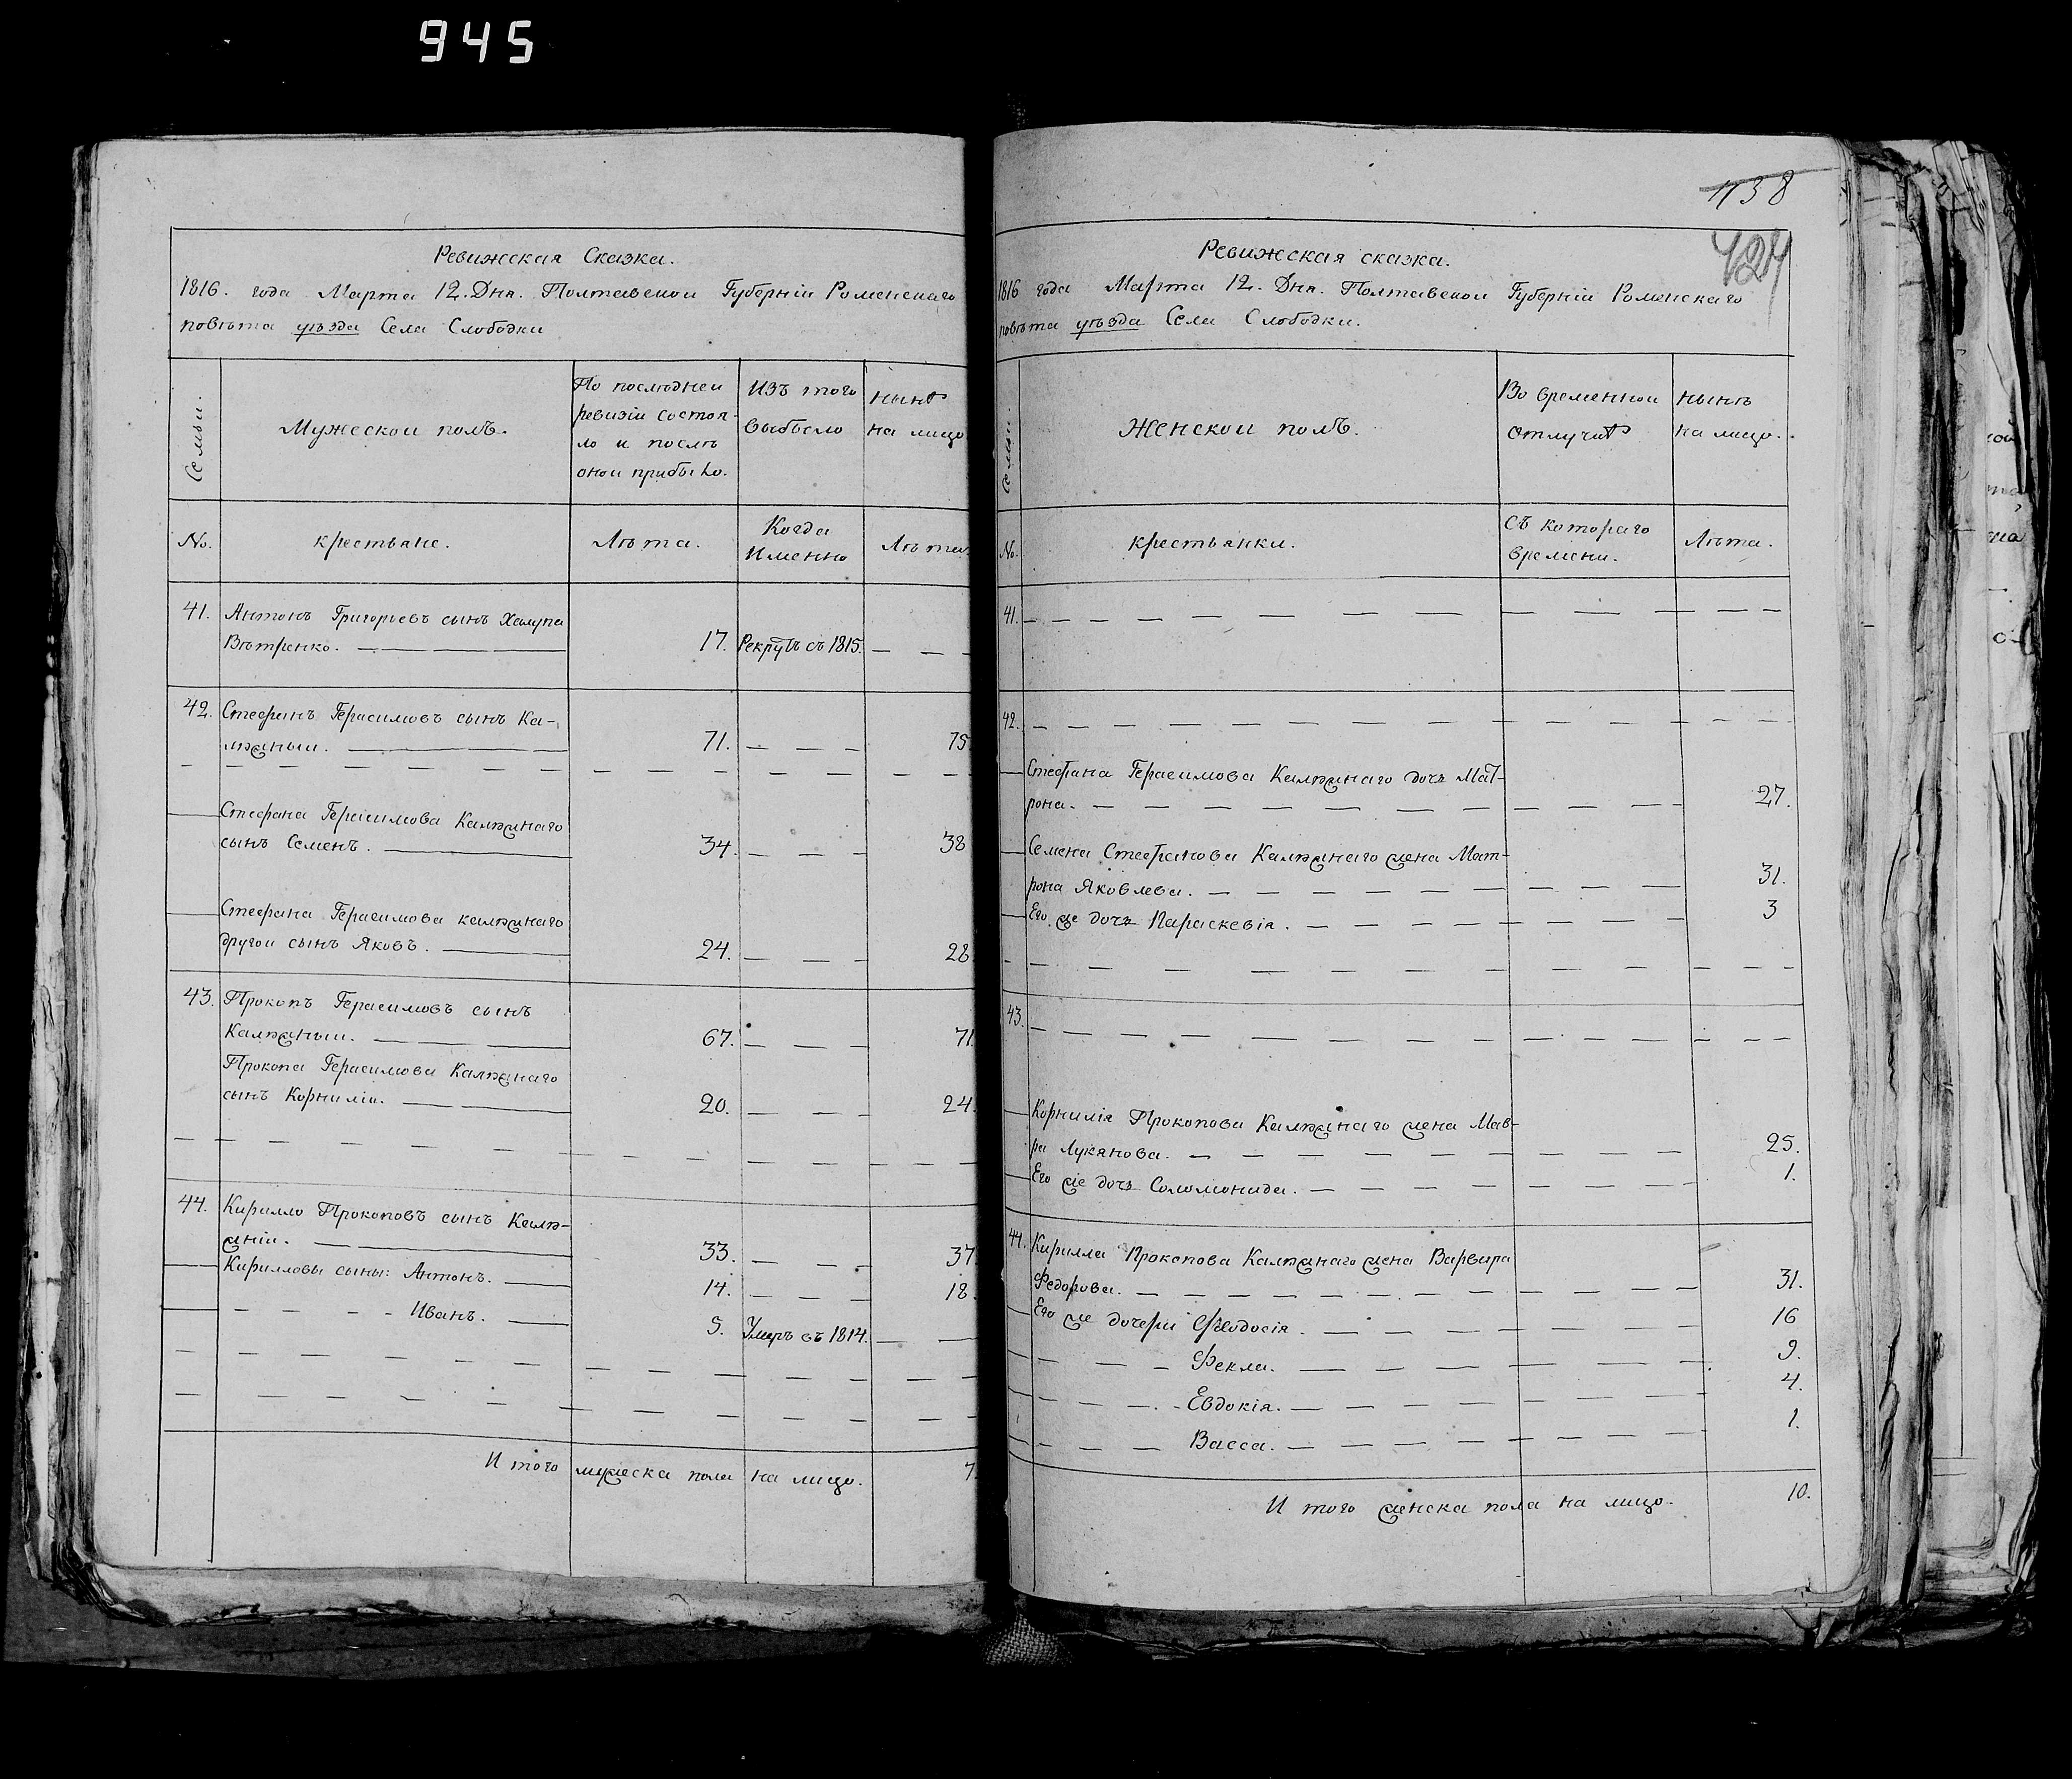 945
Ревижская Сказка.
1816. года Марта 12. Дня. Полтавской Губерніи Роменскаго
повѣта уѣзда Села Слободки
Семьи.
Мужескои полъ.
По послѣднеи
ревизіи состоя-
ло и послѣ
онои прибыло.
Изъ того
выбыло
нынѣ
на лицо
No.
крестьяне.
Лѣта.
Когда
Именно
Лѣта.
41. Антонъ Григорьевъ сынъ Халупа
Вѣтренко. 17. Рекрутъ съ 1815.
42. Стефанъ Герасимовъ сынъ Ка-
лѣжный. 71. 75
Стефана Герасимова Калѣжнаго
сынъ Семенъ. 34. 38
Стефана Герасимова калѣжнаго
другои сынъ Яковъ. 24. 28
43. Прокопъ Герасимовъ сынъ
Калѣжный. 67. 71.
Прокопа Герасимова Калѣжнаго
сынъ Корнилій. 20. 24
44. Кирилло Прокоповъ сынъ Калѣ-
жній. 33. 37
Кирилловы сыны: Антонъ. 14. 18.
Иванъ. 5. Умеръ въ 1814.
И того мужеска пола на лицо. 7.
438
424
Ревижская сказка.
1816 года Марта 12. Дня. Полтавской Губерніи Роменскаго
повѣта уѣзда Села Слободки.
Семьи.
Женскои полъ.
Во временнои
отлучкѣ
нынѣ
на лицо.
No.
крестьянки.
съ котораго
времени.
Лѣта.
41.
42.
Стефана Герасимова Калѣжнаго дочь Мат-
рона. 27.
Семена Стефанова Калѣжнаго жена Мат-
рона Яковлева. 31.
Его же дочь Параскевія. 3
43.
Корнилія Прокопова Калѣжнаго жена Мав-
ра Луканова. 25.
Его же дочь Соломонида. 1.
44. Кирилла Прокопова Калѣжнаго жена Варвара
Федорова. 31.
Его же дочери Феодосія. 16
Фекла. 9.
Евдокія. 4.
Васса. 1.
И того женска пола на лицо. 10.